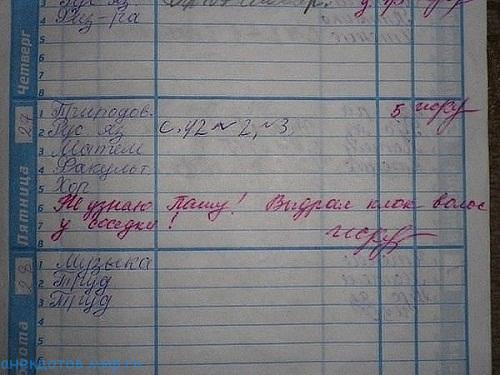 3 Рус яз
4 Физ-ра
5
6
7
8
Четверг
1 Природов. 5
2 Рус яз с.42 №2, №3
3 Матем
4 Факульт
5 Хор
6 Не узнаю Пашу! Выдрал клок волос
7 у соседки!
8
27
Пятница
1 Музыка
2 Труд
3 Труд
4
5
6
28